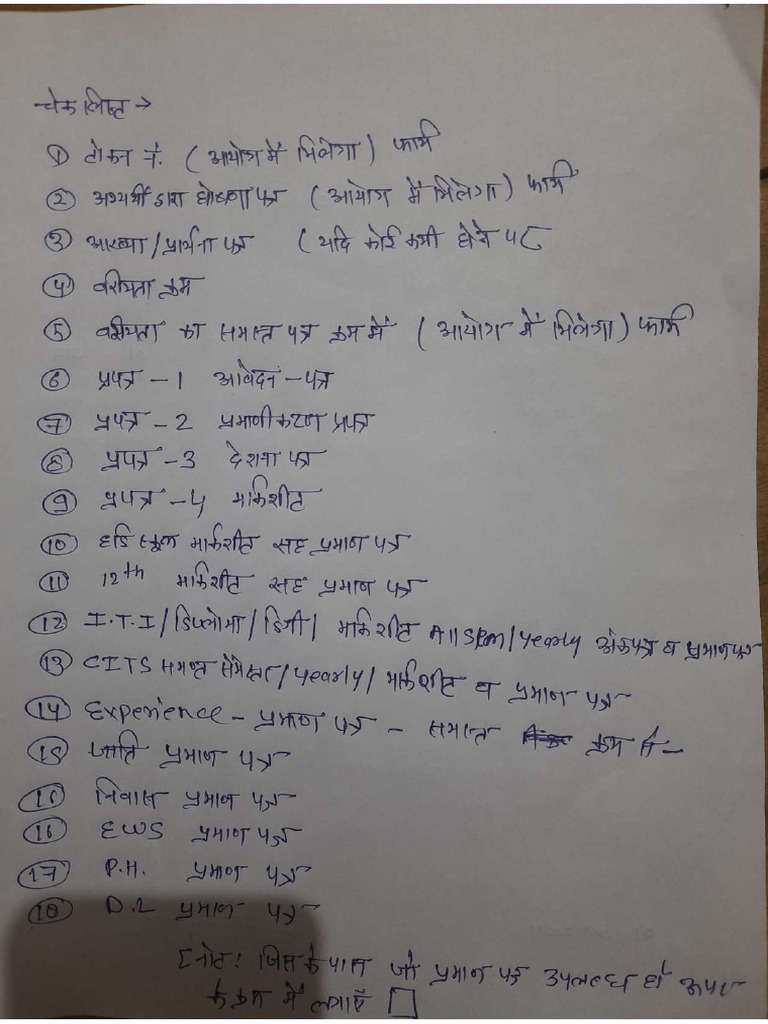 चेकलिस्ट →
① टोकन नं. (आयोग में मिलेगा) फार्म
② अभ्यर्थी द्वारा घोषणा पत्र (आयोग में मिलेगा) फार्म
③ आख्या/प्रार्थना पत्र (यदि कोई कमी होने पर
④ वरीयता क्रम
⑤ वरीयता का समस्त पत्र क्रम में (आयोग में मिलेगा) फार्म
⑥ प्रपत्र - 1 आवेदन - पत्र
⑦ प्रपत्र - 2 प्रमाणीकरण प्रपत्र
⑧ प्रपत्र - 3 देशना पत्र
⑨ प्रपत्र - 4 मार्कशीट
⑩ हाई स्कूल मार्कशीट सह प्रमाण पत्र
⑪ 12th मार्कशीट सह प्रमाण पत्र
⑫ I.T.I/डिप्लोमा/डिग्री/ मार्कशीट All Sem/yearly अंकपत्र व प्रमाण पत्र
⑬ CITS समस्त सेमेस्टर/yearly/ मार्कशीट व प्रमाण पत्र
⑭ Experience - प्रमाण पत्र - समस्त क्रम में -
⑮ जाति प्रमाण पत्र
⑮ निवास प्रमाण पत्र
⑯ EWS प्रमाण पत्र
⑰ P.H. प्रमाण पत्र
⑱ D.L प्रमाण पत्र
[नोट! जिसके पास जो प्रमाण पत्र उपलब्ध हो ऊपर
के क्रम में लगाएँ ]